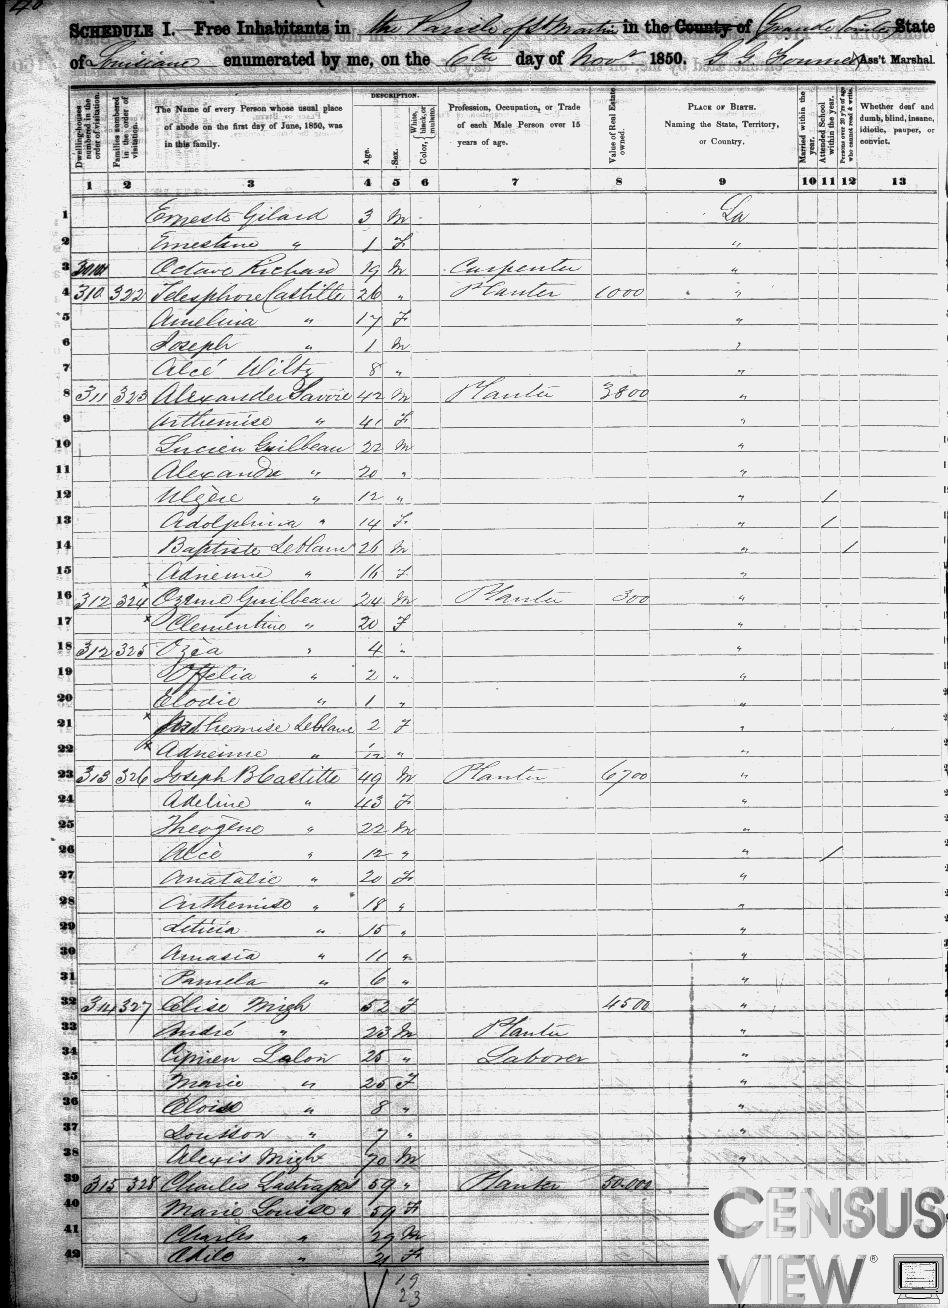 40
SCHEDULE I.—Free Inhabitants in the Parish of St Martin in the County of Grande Pointe State
of Louisiana enumerated by me, on the 6th day of Novr 1850. Ass't Marshal.
Dwelling-houses numbered in the order of visitation.
Families numbered in the order of visitation.
The Name of every Person whose usual place of abode on the first day of June, 1850, was in this family.
DESCRIPTION.
Age.
Sex.
Color, { White, black, or mulatto.
Profession, Occupation, or Trade of each Male Person over 15 years of age.
Value of Real Estate owned.
PLACE OF BIRTH. Naming the State, Territory, or Country.
Married within the year.
Attended School within the year.
Persons over 20 y'rs of age who cannot read & write.
Whether deaf and dumb, blind, insane, idiotic, pauper, or convict.
1 2 3 4 5 6 7 8 9 10 11 12 13
1 Ernest Gilard 3 M La
2 Ernestine " 1 F "
3 Octave Richard 19 M Carpenter "
4 310 322 Telesphore Castille 26 " Planter 1000 "
5 Amelina " 17 F "
6 Joseph " 1 M "
7 Alcé Wiltz 8 " "
8 311 323 Alexander Savoie 42 M Planter 3800 "
9 Arthemise " 41 F "
10 Lucien Guilbeau 22 M "
11 Alexandre " 20 " "
12 Ulgère " 12 " " /
13 Adolphina " 14 F " /
14 Baptiste Leblanc 26 M " /
15 Adrienne " 16 F "
16 312 324 x Ozeme Guilbeau 24 M Planter 300 "
17 x Clementine " 20 F "
18 312 325 Ozèa " 4 " "
19 Offelia " 2 " "
20 Elodie " 1 " "
21 x Arthemise Leblanc 2 F "
22 x Adrienne " /12 " "
23 313 326 Joseph B Castille 49 M Planter 6700 "
24 Adeline " 43 F "
25 Theogène " 22 M "
26 Alcé " 12 " " /
27 Anatalie " 20 F "
28 Arthemise " 18 " "
29 Leticia " 15 " "
30 Amasia " 11 " "
31 Pamela " 6 " "
32 314 327 Elise Migh 52 F 4500 "
33 André " 23 M Planter "
34 Ciprien Lalon 25 " Laborer "
35 Marie " 25 F "
36 Eloise " 8 " "
37 Lousson " 7 " "
38 Alexis Migh 70 M "
39 315 328 Charles Lastrapes 59 " Planter 50.000
40 Marie Louise " 59 F
41 Charles " 29 M
42 Odile " 21 F
19
23
CENSUS
VIEW®